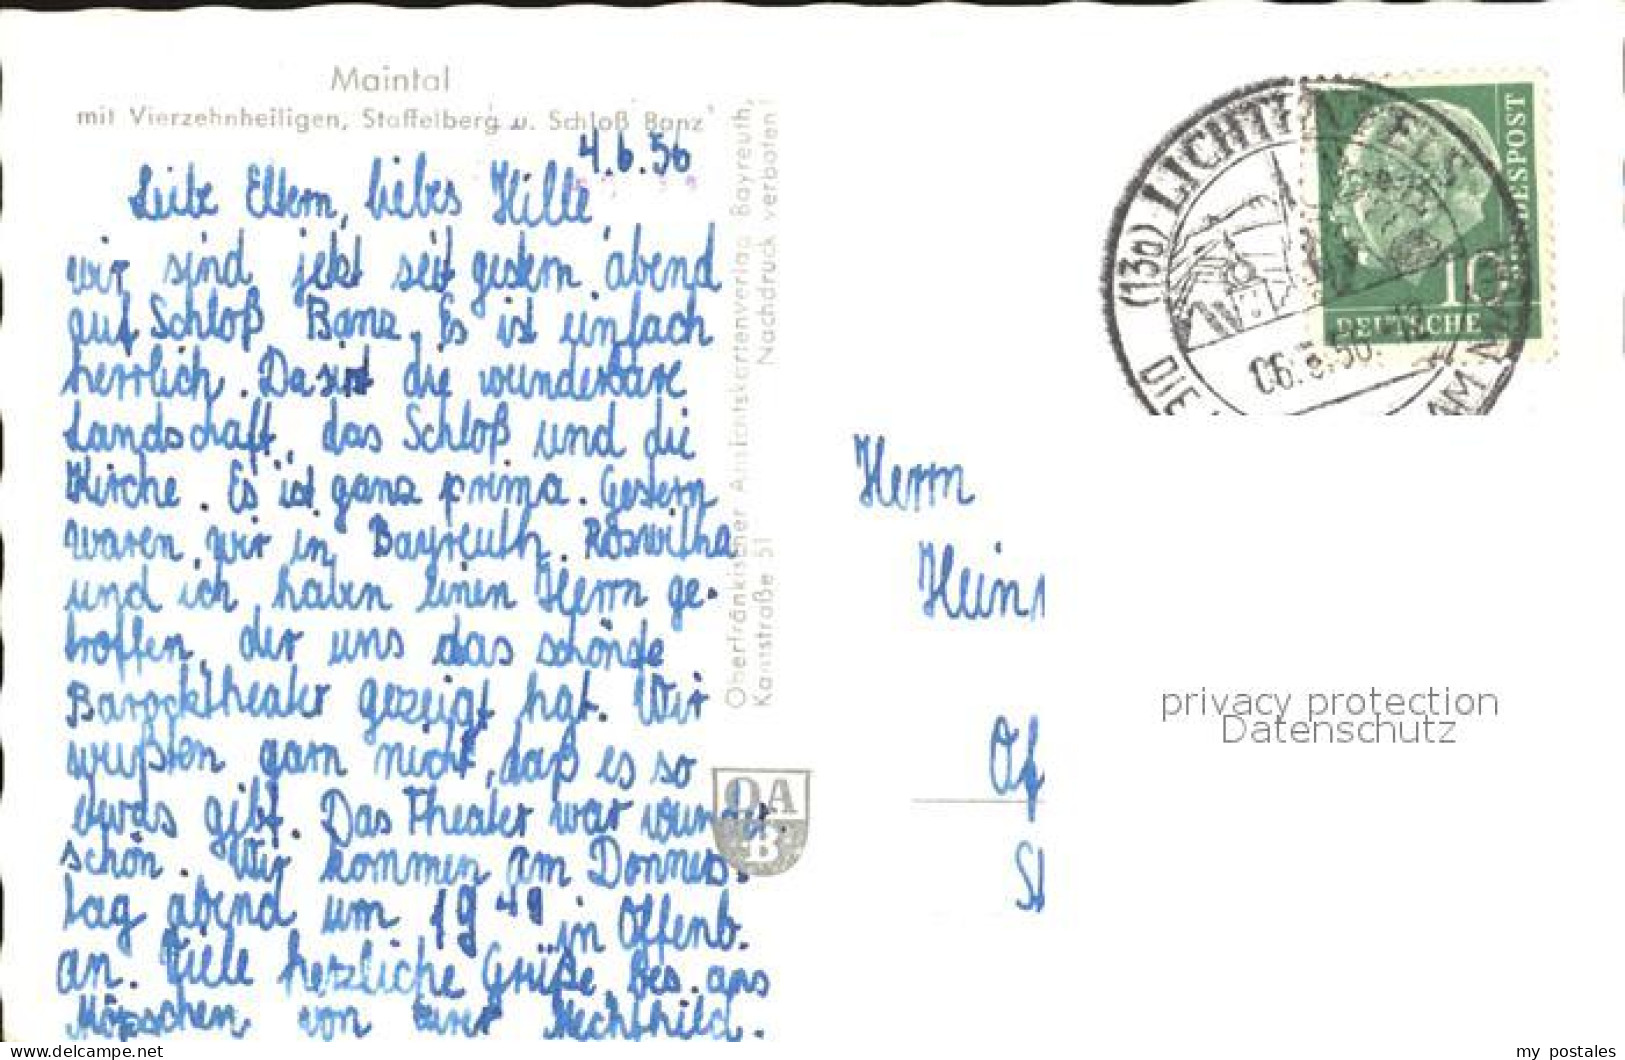 Maintal
mit Vierzehnheiligen, Staffelberg u. Schloß Banz
4.6.56
Leibe Eltern, liebes Hille,
wir sind jetzt seit gestern abend
auf Schloß Banz. Es ist einfach
herrlich. Da ist die wunderbare
Landschaft, das Schloß und die
Kirche. Es ist ganz prima. Gestern
waren wir in Bayreuth. Roswitha
und ich haben einen Herrn ge-
troffen, der uns das schönste
Barocktheater gezeigt hat. Wir
wußten garn nicht, daß es so
etwas gibt. Das Theater war wunder-
schön. Wir kommen am Donners-
tag abend um 19 49 in Offenb.
an. Viele herzliche Grüße, bes. ans
von eurer Mechthild.
Oberfränkischer Ansichtskartenverlag Bayreuth,
Kantstraße 51 Nachdruck verboten!
OA
B
(13a) LICHTENFELS
DIE
AM MAIN
06.6.56.-12
10
DEUTSCHE
BUNDESPOST
Herrn
Hein
Of
St
privacy protection
Datenschutz
www.delcampe.net/clausyAK
my postales